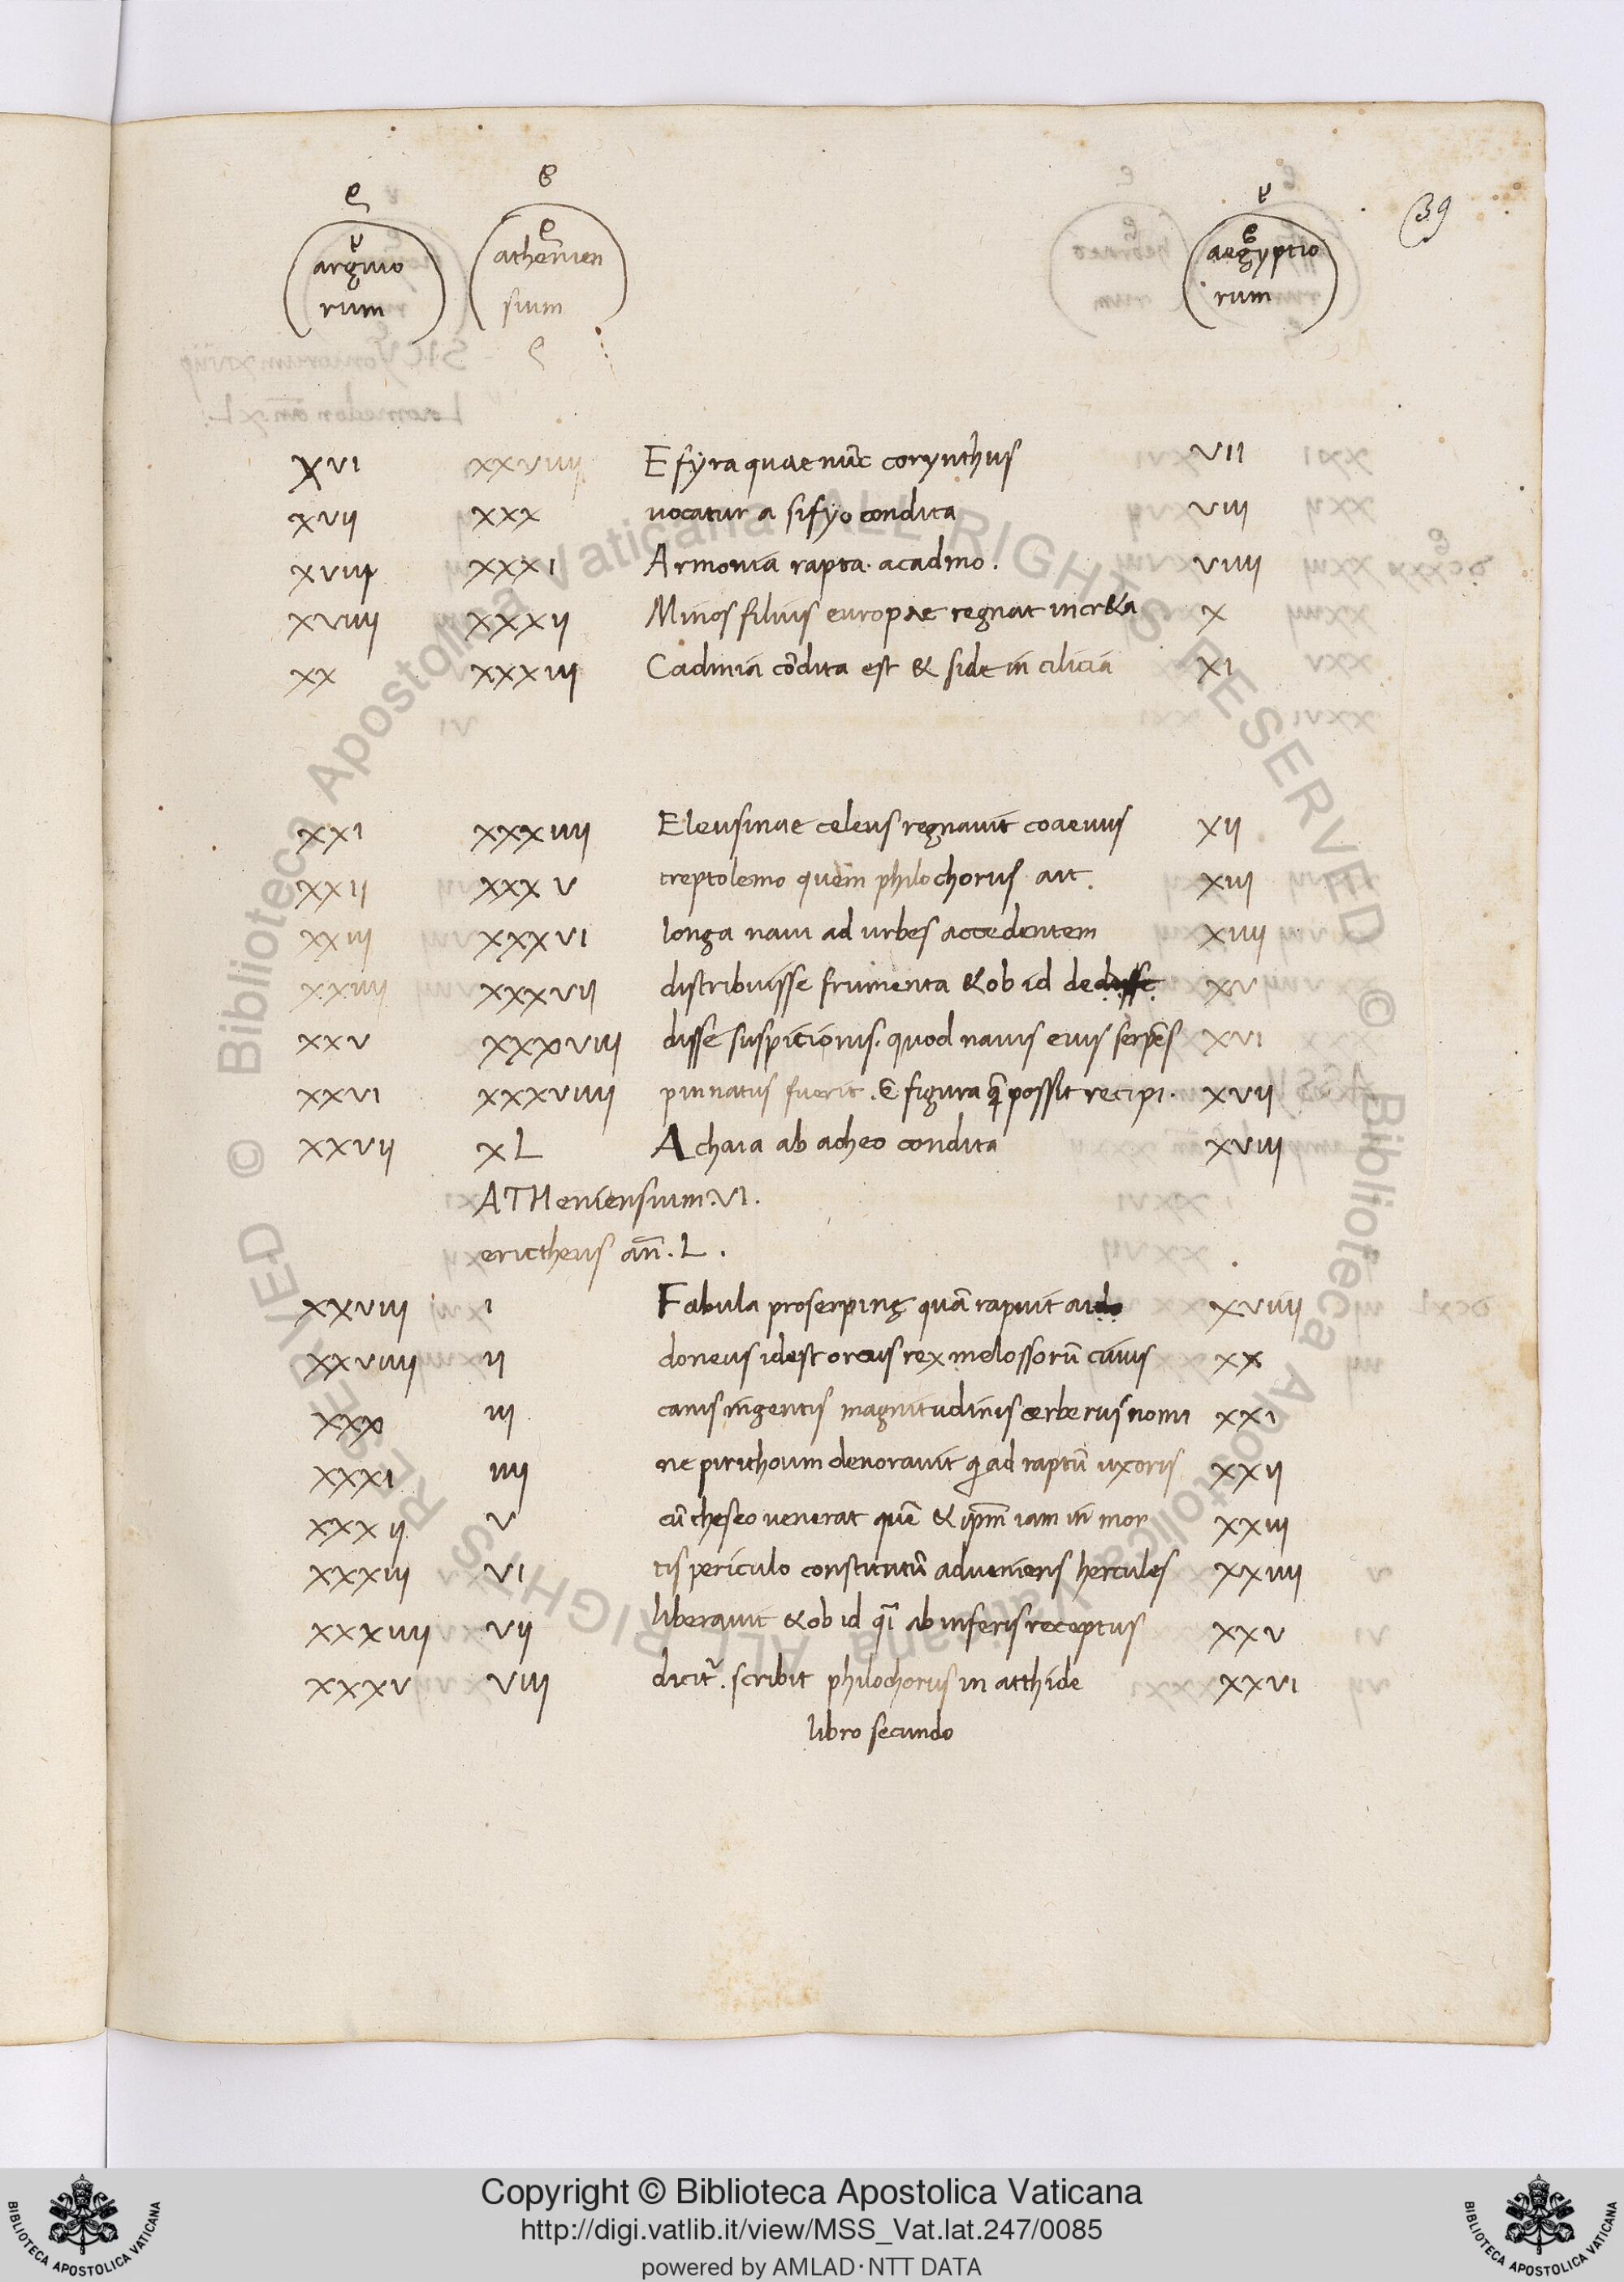 39
argiuo
rum
athenien
sium
aegyptio
rum
XVI XXVIIII Efyra quae nūc corynthus VII
XVII XXX uocatur a sifyo condita VIII
XVIII XXXI Armonia rapta. acadmo. VIIII
XVIIII XXXII Minos filius europae regnat in cr&a X
XX XXXIII Cadmia cōdita est & side in cilicia XI
XXI XXXIIII Eleusinae celeus regnauit coaeuus XII
XXII XXXV treptolemo quem philochorus ait. XIII
XXIII XXXVI longa naui ad urbes accedentem XIIII
XXIIII XXXVII distribuisse frumenta & ob id dedisse XV
XXV XXXVIII disse suspicionis. quod nauis eius serpēs XVI
XXVI XXXVIIII pinnatus fuerit. & figura possit recipi. XVII
XXVII XL Achaia ab acheo condita XVIII
ATHeniensium. VI.
erictheus an̄. L.
XXVIII I Fabula proserpinę quā rapuit aido XVIIII
XXVIIII II doneus idest orcus rex molossorū cuius XX
XXX III canis ingentis magnitudinis cerberus nomi XXI
XXXI IIII ne pirithoum deuorauit q ad raptū uxoris XXII
XXXII V cū theseo uenerat quē & ipm̄ iam in mor XXIII
XXXIII VI tis periculo constitutū adueniens hercules XXIIII
XXXIIII VII liberauit & ob id qī ab inferis receptus XXV
XXXV VIII dicit᷑. scribit philochorus in atthide XXVI
libro secundo
© Biblioteca Apostolica Vaticana ALL RIGHTS RESERVED
© Biblioteca Apostolica Vaticana ALL RIGHTS RESERVED
Copyright © Biblioteca Apostolica Vaticana
http://digi.vatlib.it/view/MSS_Vat.lat.247/0085
powered by AMLAD·NTT DATA
BIBLIOTECA APOSTOLICA VATICANA
BIBLIOTECA APOSTOLICA VATICANA